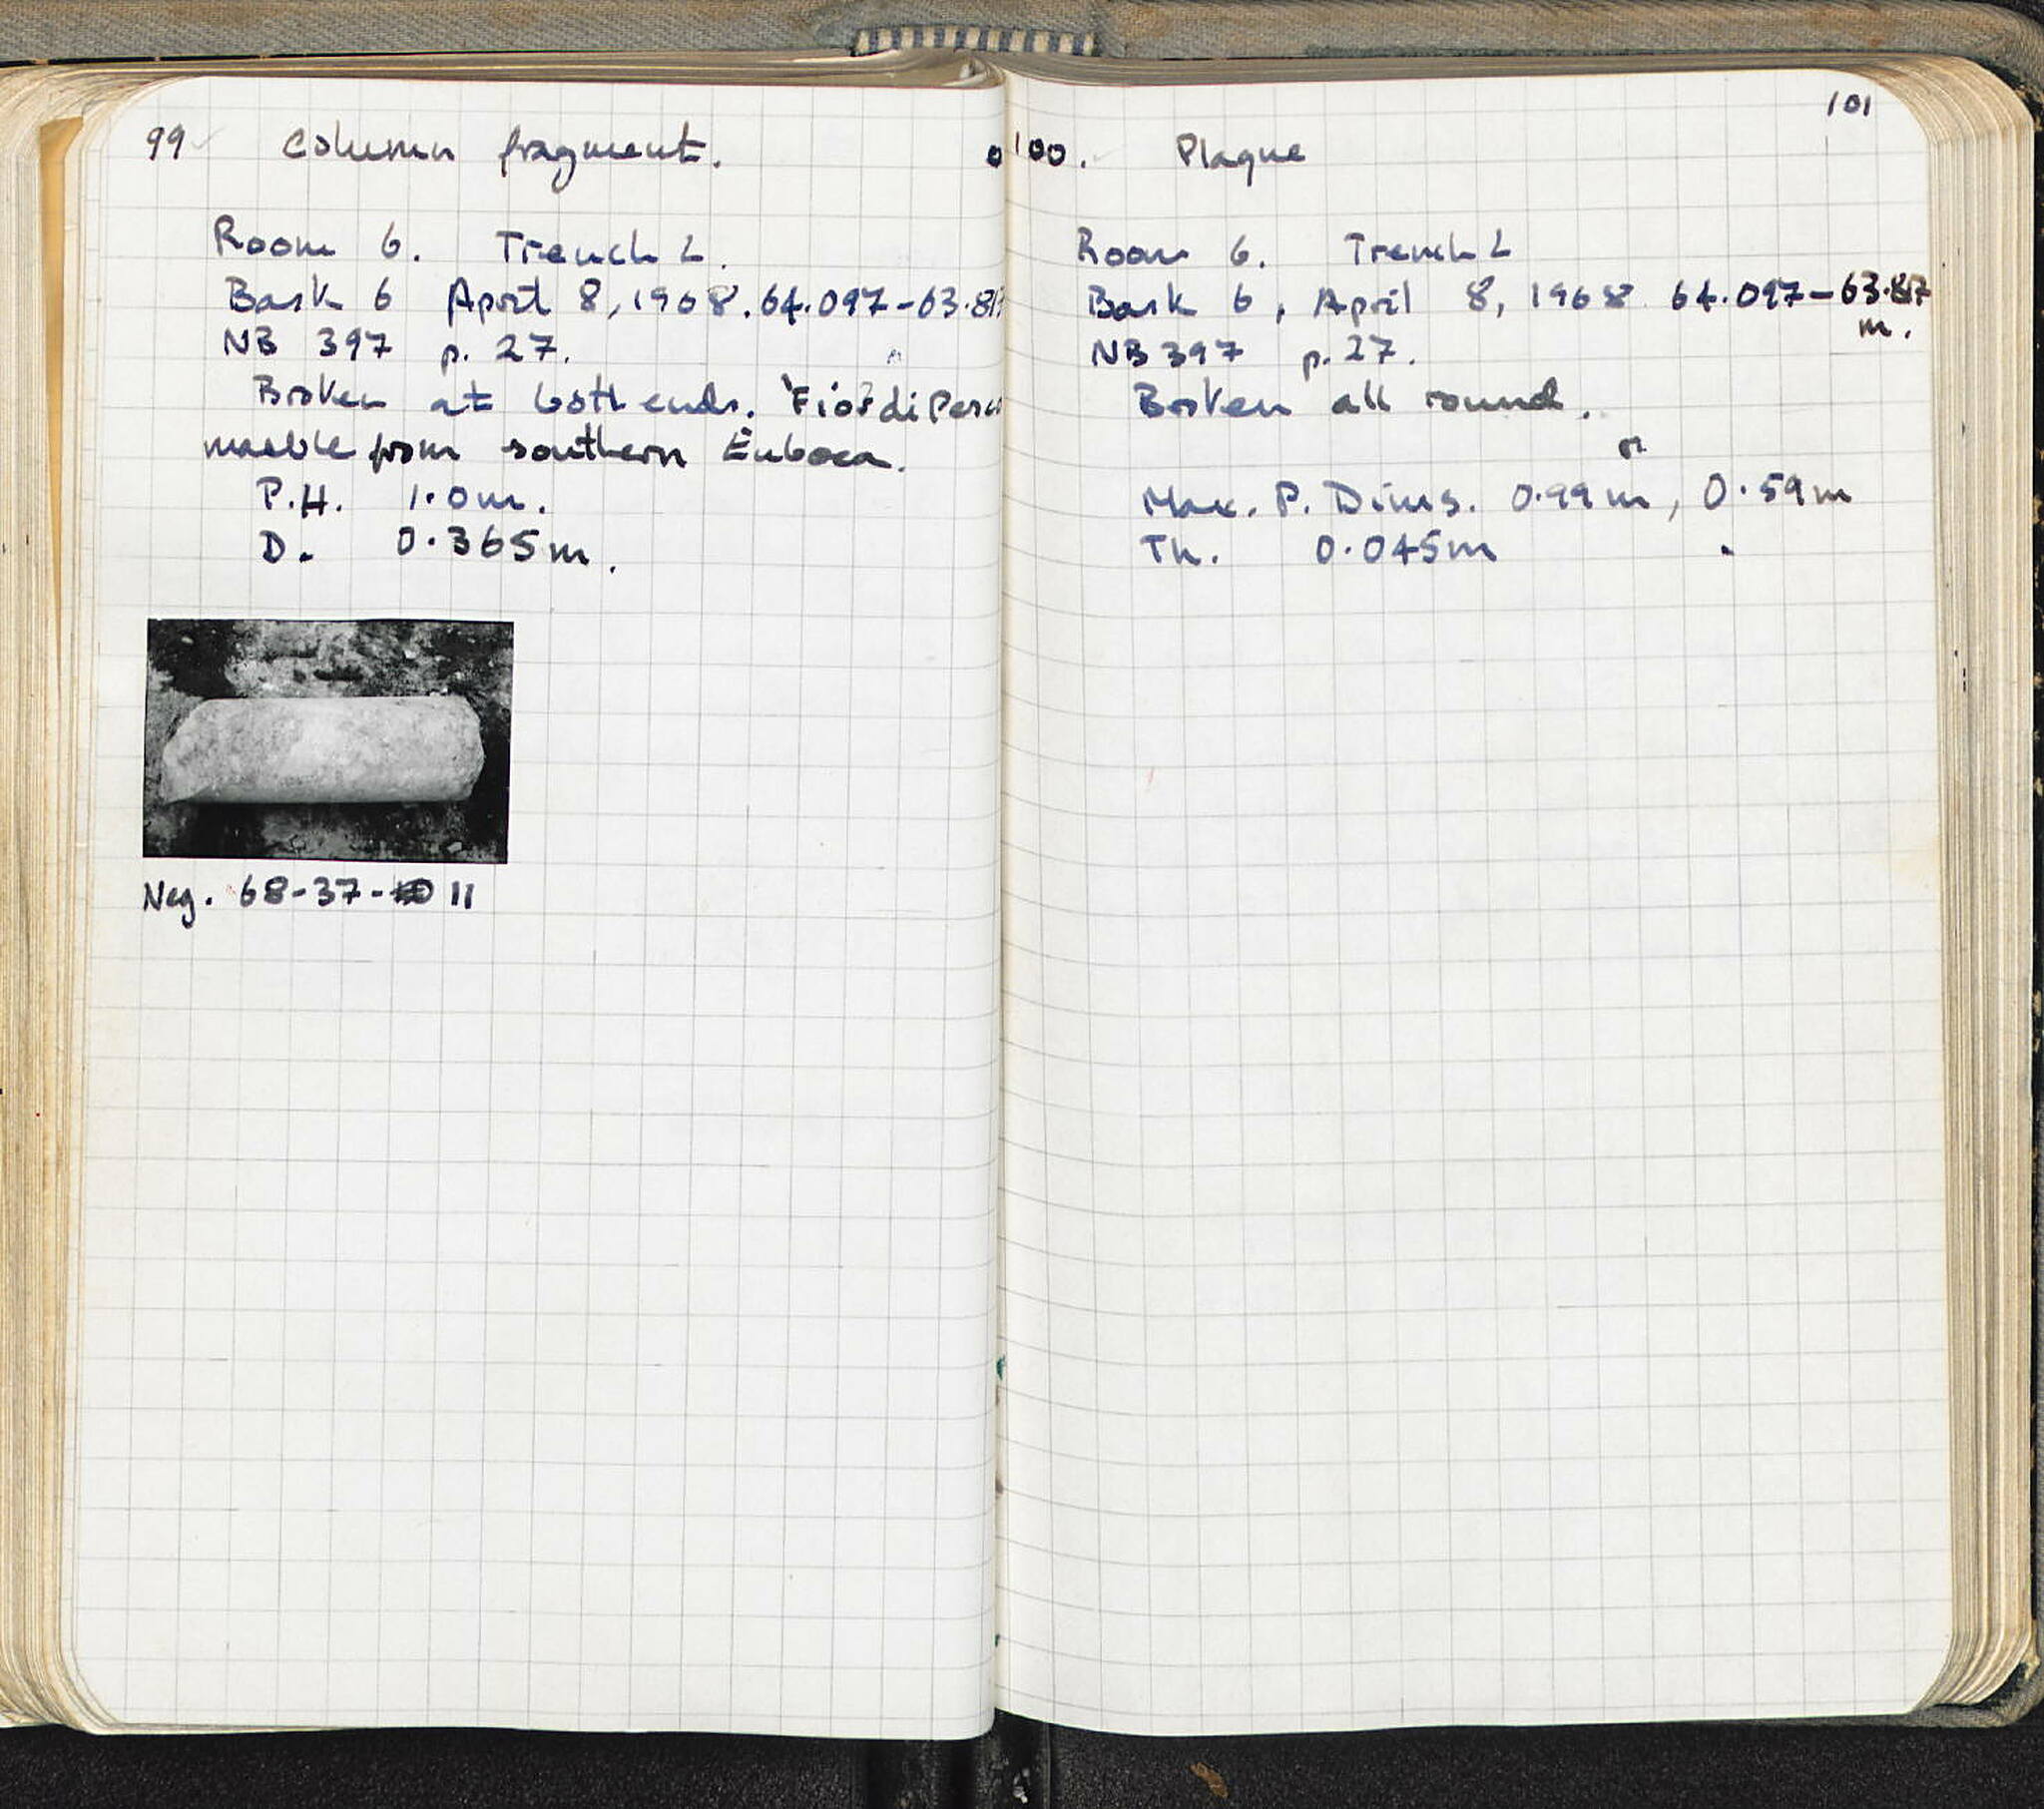 99 Column fragment.
Room 6. Trench L.
Bask 6 April 8, 1968. 64.097-63.81
NB 397 p. 27.
Broken at both ends. 'Fior di Pers
marble from southern Euboea.
P.H. 1.0m.
D. 0.365m.
Neg. 68-37- 11
101
100. Plaque
Room 6. Trench L
Bask 6, April 8, 1968 64.097-63.817
m.
NB 397 p. 27.
Broken all round.
Max. P. Dims. 0.99m, 0.59m
Th. 0.045m